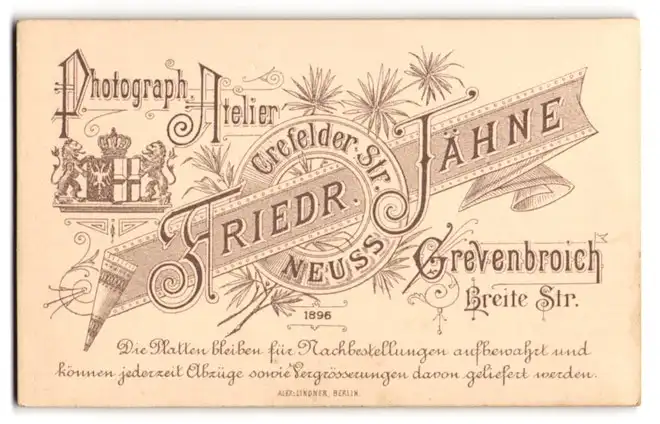 Photograph. Atelier
Crefelder-Str.
FRIEDR. JÄHNE
NEUSS
Grevenbroich
Breite Str.
1896
Die Platten bleiben für Nachbestellungen aufbewahrt und
können jederzeit Abzüge sowie Vergrösserungen davon geliefert werden.
ALEX. LINDNER, BERLIN.